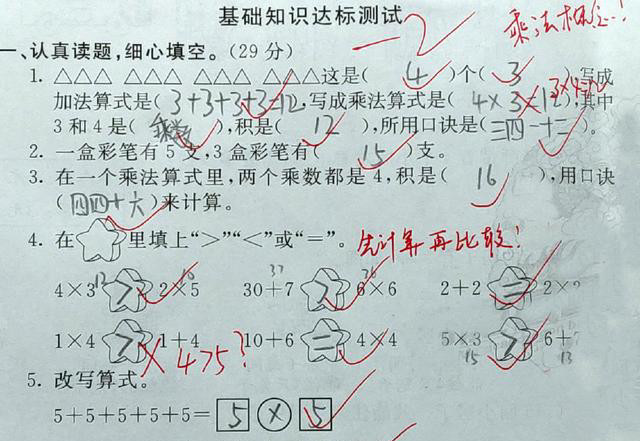 基础知识达标测试
一、认真读题,细心填空。(29分) -2 乘法
1. △△△ △△△ △△△ △△△这是( 4 )个( 3 ),写成
加法算式是( 3+3+3+3=12 ),写成乘法算式是( 4×3=12 ),其中
3和4是( 乘数 ),积是( 12 ),所用口诀是(三四一十二)。
2. 一盒彩笔有5支,3盒彩笔有( 15 )支。
3. 在一个乘法算式里,两个乘数都是4,积是( 16 ),用口诀
(四四十六)来计算。
4. 在☆里填上“>”“<”或“=”。 先计算再比较!
12 10 37 36
4×3 > 2×5 30+7 > 6×6 2+2 = 2×
1×4 > 1+4 10+6 = 4×4 5×3 > 6+
4>5? 15 13
5. 改写算式。
5+5+5+5+5= 5 × 5